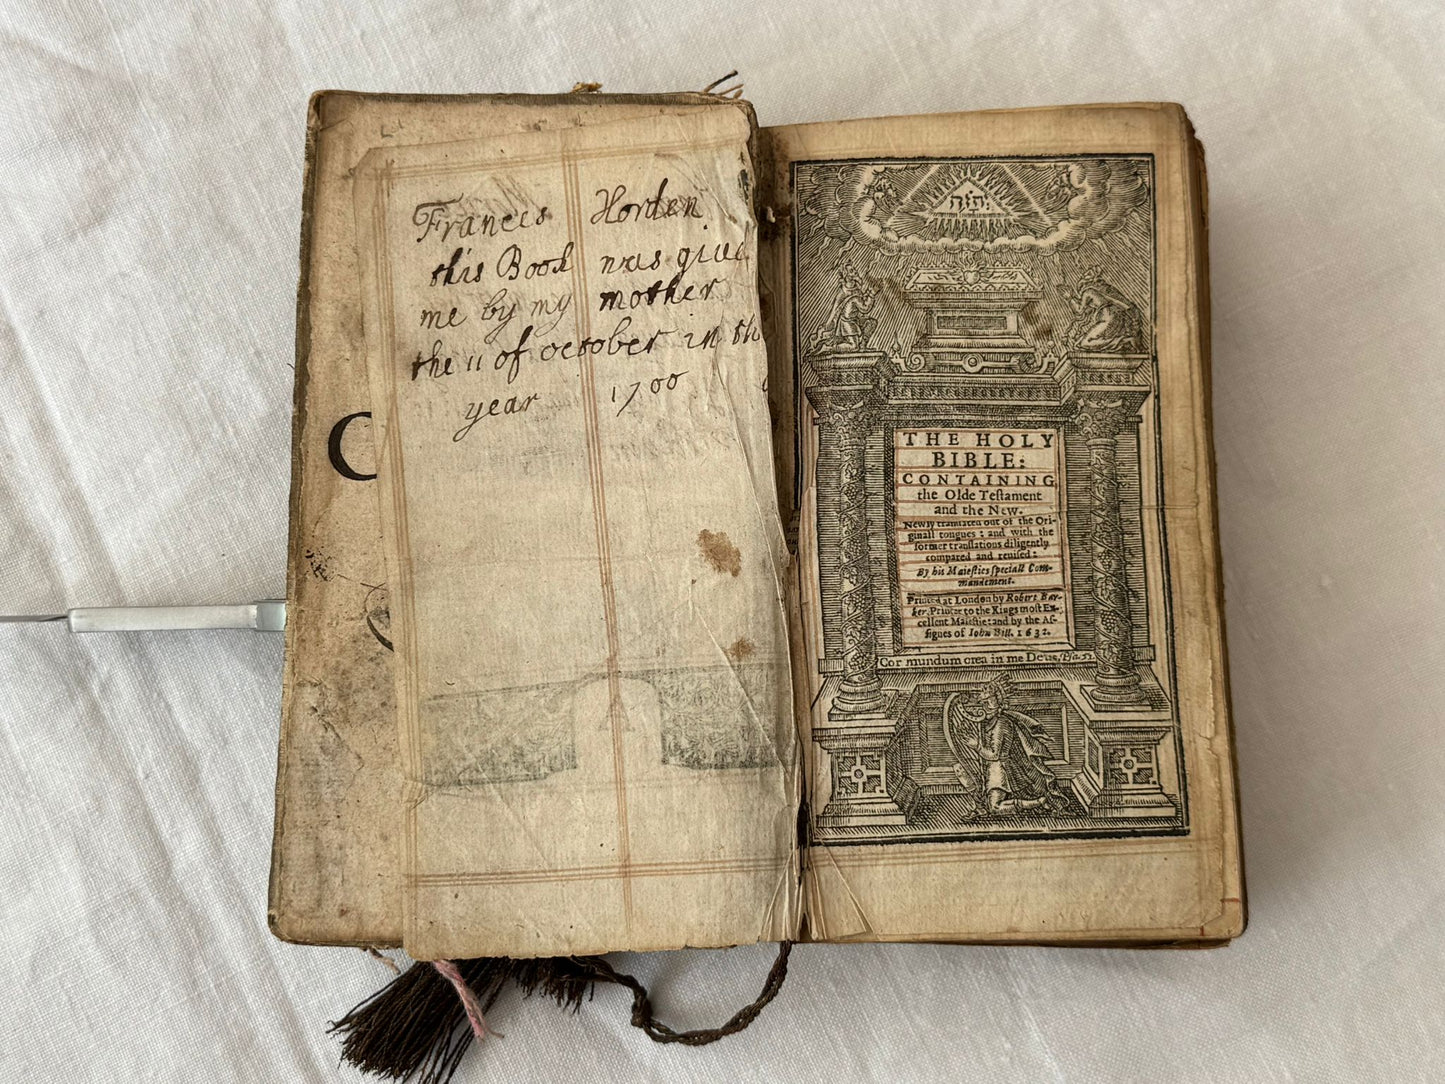 Frances Horden
this Book was give
me by my mother
the 11 of october in th
year 1700
C
יהוה
THE HOLY
BIBLE:
CONTAINING
the Olde Teſtament
and the New.
Newly tranſlated out of the Ori-
ginall tongues: and with the
former tranſlations diligently
compared and reuiſed:
By his Maieſties ſpeciall Com-
mandement.
Printed at London by Robert Bar-
ker, Printer to the Kings moſt Ex-
cellent Maieſtie: and by the Aſ-
ſignes of Iohn Bill. 1632.
Cor mundum crea in me Deus, Pſa. 51